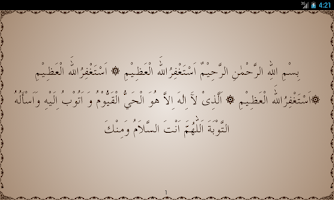 4:21
بِسْمِ اللهِ الرَّحْمٰنِ الرَّحِيْمُ اَسْتَغْفِرُاللهَ الْعَظِيْمِ ۞ اَسْتَغْفِرُاللهَ الْعَظِيْمِ
۞اَسْتَغْفِرُاللهَ الْعَظِيْمِ ۞ اَلَّذِىْ لَآ اِلٰهَ اِلاَّ هُوَ الْحَيُّ الْقَيُّوْمُ وَ اَتُوْبُ اِلَيْهِ وَاَسْأَلُهُ
التَّوْبَةَ اَللّٰهُمَّ اَنْتَ السَّلاَمُ وَمِنْكَ
1